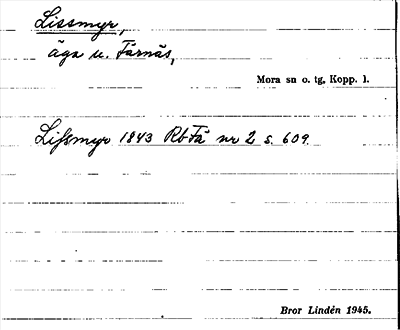 Lissmyr,
äga u. Färnäs,
Mora sn o. tg, Kopp. l.
Lifsmyr 1843 Rb Fä nr 2 s. 609.
Bror Lindén 1945.